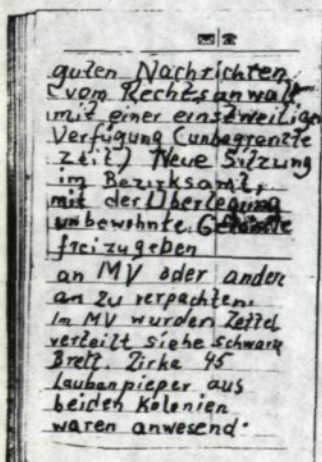 guten Nachrichten
(vom Rechtsanwalt
mit einer einstweilige
Verfügung (unbegrenzte
Zeit) Neue Sitzung
im Bezirksamt,
mit der Überlegung
unbewohnte
freizugeben
an MV oder andere
an zu verpachten.
Im MV wurden Zettel
verteilt siehe schwarze
Brett. Zirka 45
Laubenpieper aus
beiden Kolonien
waren anwesend.